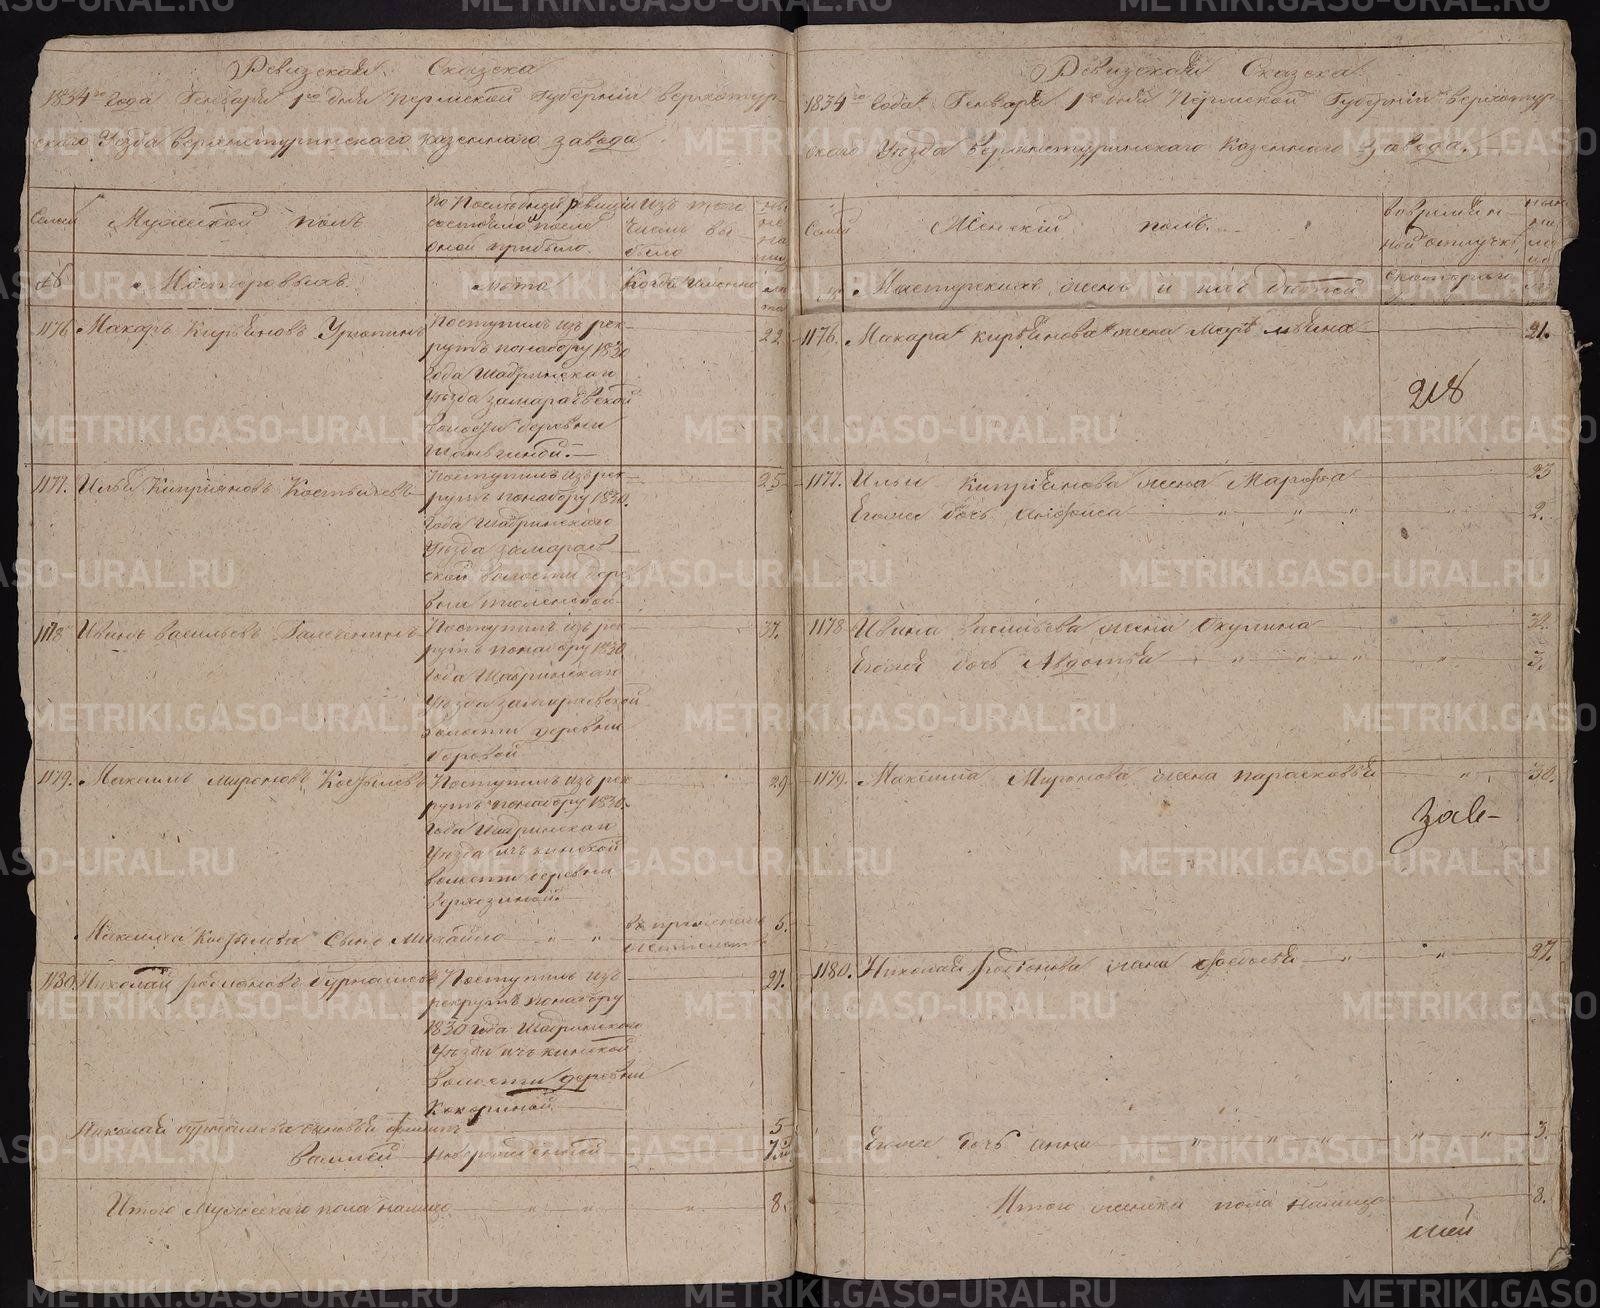 Ревизская Сказка
1834го года Генваря 1го дня Пермской Губернии Верхотур-
скаго Уезда Верхнетуринскаго казеннаго завода
Семьи
Мужеской полъ
по последней ревизии состояло и после оной прибыло
Изъ того числа выбыло
ныне на лицо
№
Мастеровыхъ
лета
Когда именно
лета
1176. Макаръ Кирьяновъ
Поступилъ изъ рек-
рутъ по набору 1830
года Шадринскаго
Уезда Замараевской
волости деревни
22
1177. Илья Киприяновъ Костылевъ
Поступилъ изъ рек-
рутъ по набору 1830.
года Шадринскаго
Уезда Замараев-
ской волости дере-
вни
25
1178 Иванъ Васильевъ
Поступилъ изъ рек-
рутъ по набору 1830
года Шадринскаго
Уезда Замараевской
волости деревни
37.
1179. Максимъ Мироновъ Костылевъ
Поступилъ изъ рек-
рутъ по набору 1830.
года Шадринскаго
Уезда Ичкинской
волости деревни
29
Максима Костылева Сынъ Михайло
5.
1180. Николай Родионовъ Бурнашевъ
Поступилъ изъ
рекрутъ по набору
1830 года Шадринскаго
Уезда Ичкинской
волости деревни
Кокориной
27.
Николая Бурнашева сыновья Филипъ
5
Василей новорожденной
Итого Мужескаго пола налицо
8.
Ревизская Сказка
1834го года Генваря 1го дня Пермской Губернии Верхотур-
скаго Уезда Верхнетуринскаго Казеннаго завода.
Семьи
Женский полъ
во временной отлучке
ныне на лицо
Мастерскихъ жены и ихъ дети
1176. Макара Кирьянова жена
21.
218
1177. Ильи Киприянова жена Марфа
23
Егоже дочь Анфиса
2.
1178 Ивана Васильева жена Окулина
Егоже дочь Авдотья
3.
1179. Максима Миронова жена Парасковья
30.
Заво-
1180. Николая Родионова жена Федосья
27.
Егоже дочь Анна
3.
Итого женска пола налицо
8.
METRIKI.GASO-URAL.RU